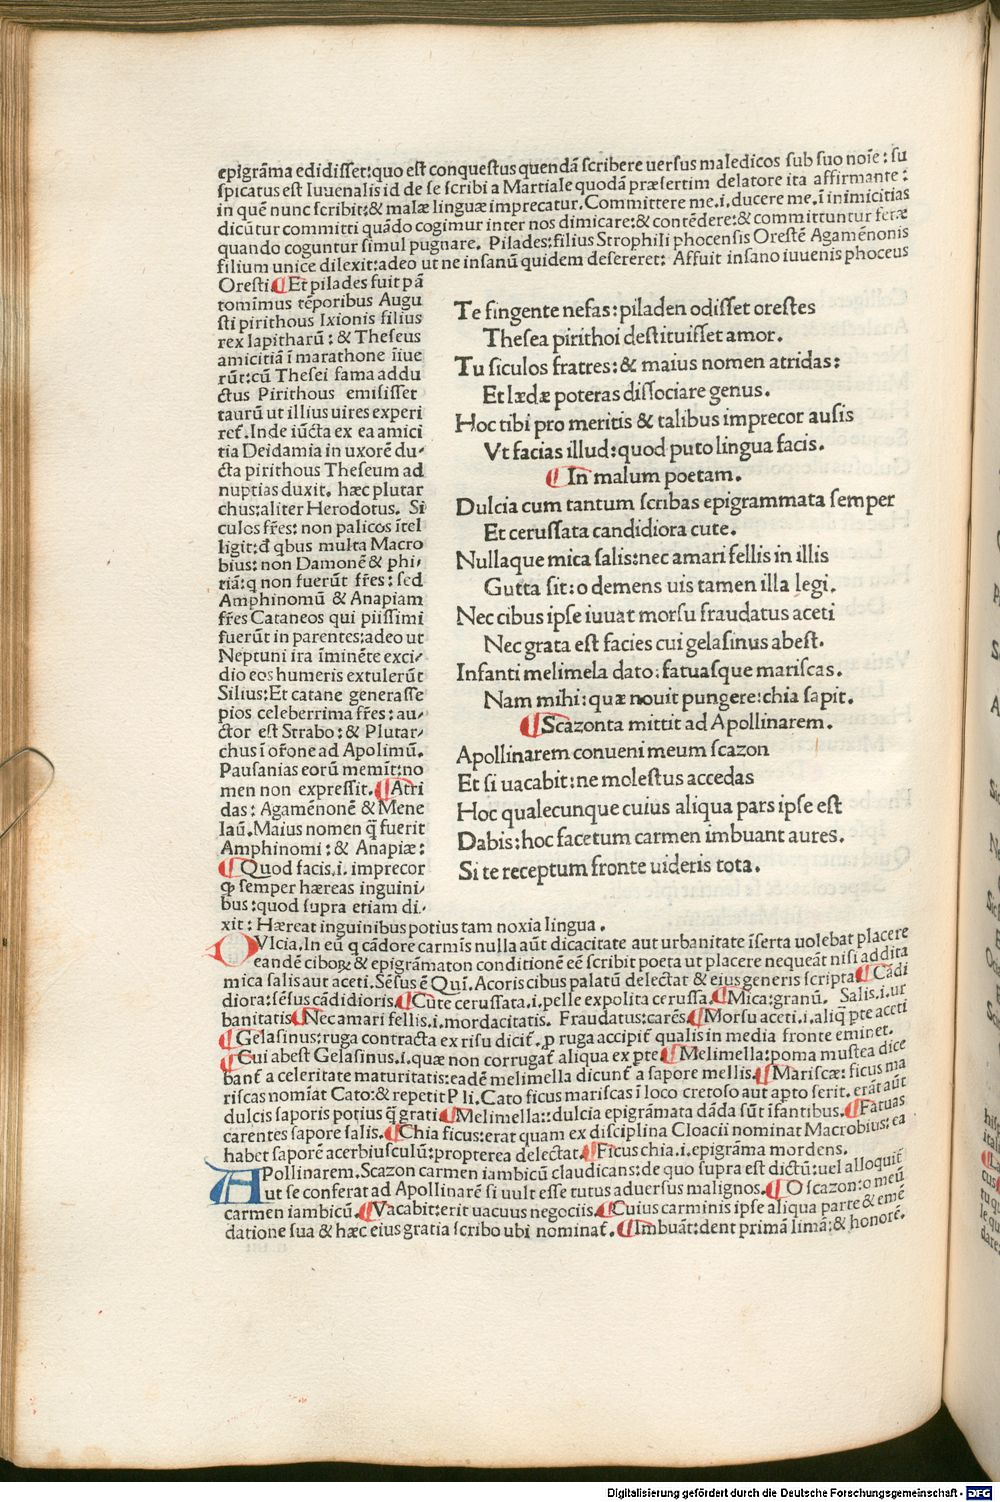 epigrāma edidisset:quo est conquestus quendā scribere uersus maledicos sub suo noīe: su
spicatus est Iuuenalis id de se scribi a Martiale quodā præsertim delatore ita affirmante:
in quē nunc scribit:& malæ linguæ imprecatur. Committere me.i.ducere me.ī inimicitias
dicūtur committi quādo cogimur inter nos dimicare:& contēdere:& committuntur feræ
quando coguntur simul pugnare. Pilades:filius Strophili phocensis Orestē Agamēnonis
filium unice dilexit:adeo ut ne insanū quidem desereret: Affuit insano iuuenis phoceus
Oresti. ¶ Et pilades fuit pā
tomīmus tēporibus Augu
sti pirithous Ixionis filius
rex lapitharū: & Theseus
amicitiā ī marathone īiue
rūt:cū Thesei fama addu
ctus Pirithous emisisset
taurū ut illius uires experi
ret̄. Inde iūcta ex ea amici
tia Deidamia in uxorē du-
cta pirithous Theseum ad
nuptias duxit. hæc plutar
chus:aliter Herodotus. Si
culos fr̄es: non palicos ītel
ligit:d̄ qbus multa Macro
bius: non Damonē & phi-
tiā:q non fuerūt fr̄es: sed
Amphinomū & Anapiam
fr̄es Cataneos qui piissimi
fuerūt in parentes:adeo ut
Neptuni ira īminēte exci-
dio eos humeris extulerūt
Silius:Et catane generasse
pios celeberrima fr̄es: au-
ctor est Strabo: & Plutar-
chus ī or̄one ad Apolimū.
Pausanias eorū memīt:no
men non expressit. ¶ Atri
das: Agamēnonē & Mene
laū. Maius nomen q̄ fuerit
Amphinomi: & Anapiæ:
¶ Quod facis.i. imprecor
ꝙ semper hæreas inguini-
bus:quod supra etiam di-
xit: Hæreat inguinibus potius tam noxia lingua.
Te fingente nefas:piladen odisset orestes
Thesea pirithoi destituisset amor.
Tu siculos fratres:& maius nomen atridas:
Et lædæ poteras dissociare genus.
Hoc tibi pro meritis & talibus imprecor ausis
Vt facias illud:quod puto lingua facis.
¶ In malum poetam.
Dulcia cum tantum scribas epigrammata semper
Et cerussata candidiora cute.
Nullaque mica salis:nec amari fellis in illis
Gutta sit:o demens uis tamen illa legi.
Nec cibus ipse iuuat morsu fraudatus aceti
Nec grata est facies cui gelasinus abest.
Infanti melimela dato:fatuasque mariscas.
Nam mihi:quæ nouit pungere:chia sapit.
¶ Scazonta mittit ad Apollinarem.
Apollinarem conueni meum scazon
Et si uacabit:ne molestus accedas
Hoc qualecunque cuius aliqua pars ipse est
Dabis:hoc facetum carmen imbuant aures.
Si te receptum fronte uideris tota.
DVlcia. In eū q cādore carmīs nulla aūt dicacitate aut urbanitate īserta uolebat placere
eandē ciboꝝ & epigrāmaton conditionē eē scribit poeta ut placere nequeāt nisi addita
mica salis aut aceti. Sēsus ē Quī. Acoris cibus palatū delectat & eius generis scripta ¶ Cādi
diora:sēsus cādidioris. ¶ Cute cerussata.i.pelle expolita cerussa. ¶ Mica:granū. Salis.i.ur
banitatis ¶ Nec amari fellis.i.mordacitatis. Fraudatus:carēs. ¶ Morsu aceti.i.aliq̄ pte aceti
¶ Gelasinus:ruga contracta ex risu dicit̄. p ruga accipit̄ qualis in media fronte eminet.
¶ Cui abest Gelasinus.i.quæ non corrugat̄ aliqua ex pte ¶ Melimella:poma mustea dice
bant̄ a celeritate maturitatis:eadē melimella dicunt̄ a sapore mellis. ¶ Mariscæ: ficus ma
riscas nomīat Cato:& repetit Pli. Cato ficus mariscas ī loco cretoso aut apto serit. erāt aūt
dulcis saporis potius q̄ grati ¶ Melimella:: dulcia epigrāmata dāda sūt īfantibus. ¶ Fatuas
carentes sapore salis. ¶ Chia ficus:erat quam ex disciplina Cloacii nominat Macrobius: ea
habet saporē acerbiusculū:propterea delectat. ¶ Ficus chia.i.epigrāma mordens.
APollinarem. Scazon carmen iambicū claudicans:de quo supra est dictū:uel alloquit̄
ut se conferat ad Apollinarē si uult esse tutus aduersus malignos. ¶ O scazon:o meū
carmen iambicū. ¶ Vacabit:erit uacuus negociis. ¶ Cuius carminis ipse aliqua parte & emē
datione sua & hæc eius gratia scribo ubi nominat̄. ¶ Imbuāt:dent primā limā:& honorē.
Digitalisierung gefördert durch die Deutsche Forschungsgemeinschaft - DFG